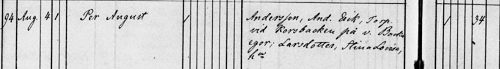 94 Aug. 4 1 Per August 1 Andersson, And. Erik, Torp. 1 34
vid Korsbacken på v. Back-
egor; Larsdotter, Stina Lovisa,
h.